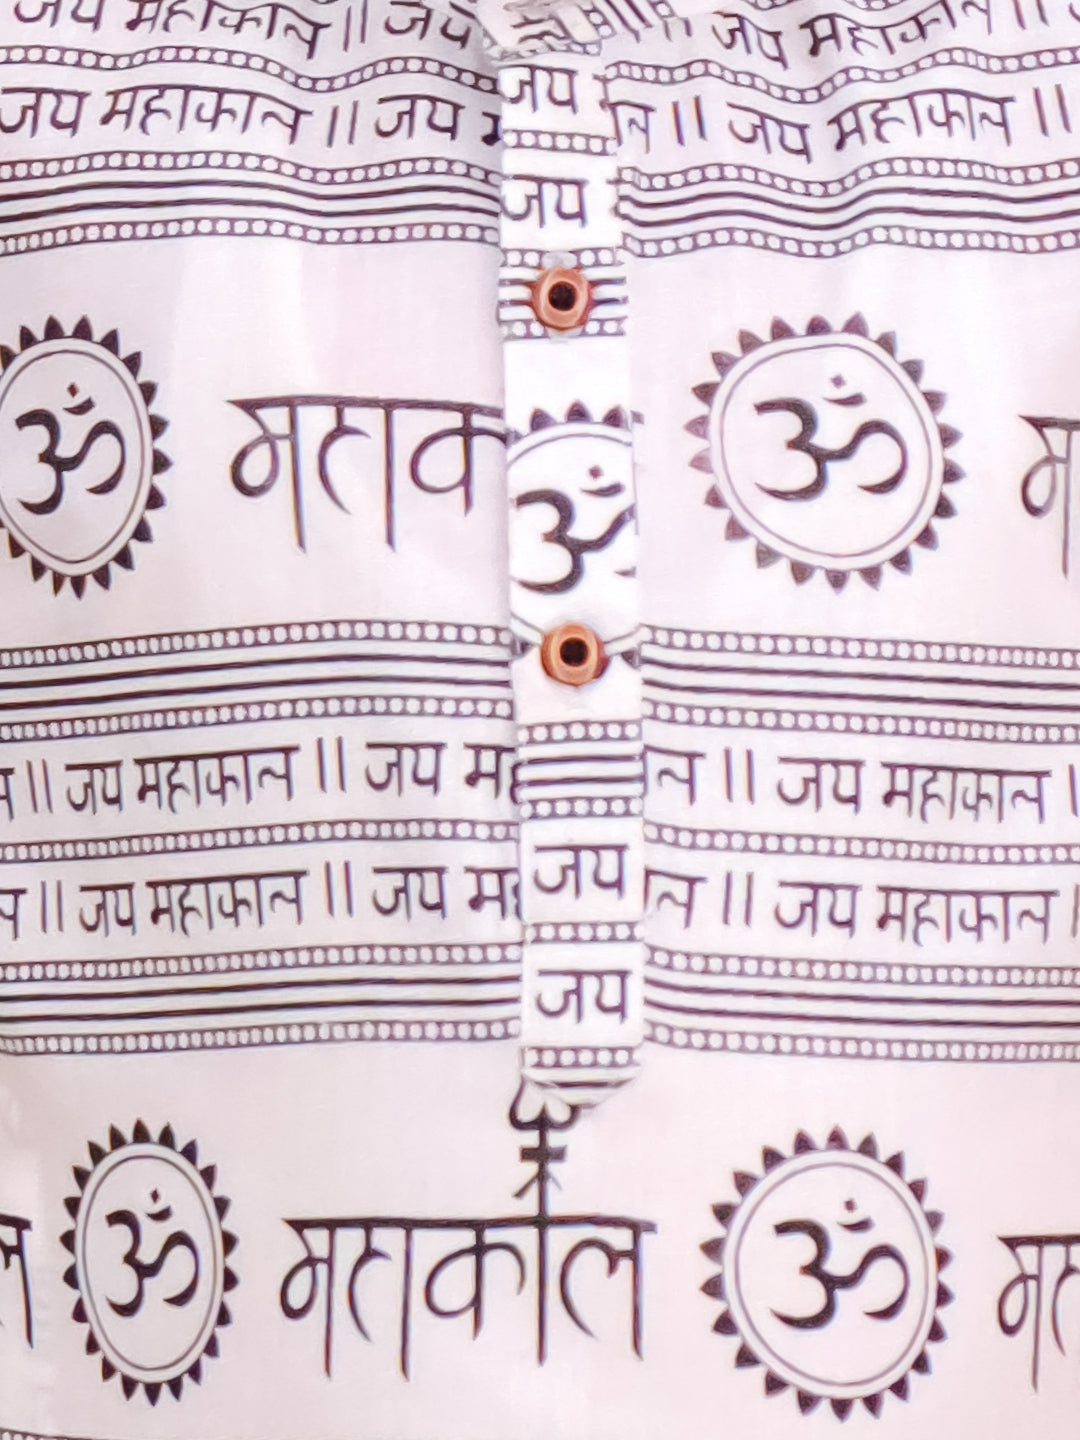 जय महाकाल || जय जय महाकाल ||
जय महाकाल || जय जय ल || जय महाकाल ||
जय
ॐ महाक ॐ ॐ म
ल || जय महाकाल || जय म ल || जय महाकाल |
ल || जय महाकाल || जय म जय ल || जय महाकाल |
जय
ल ॐ महाकाल ॐ मह